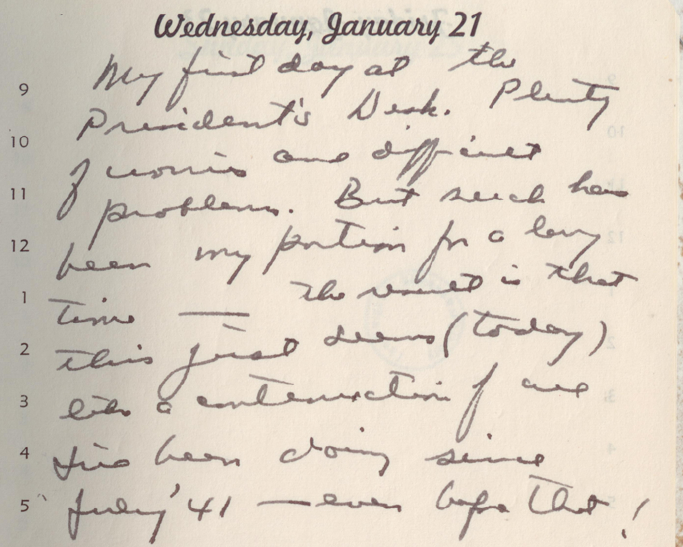 Wednesday, January 21
My first day at the
9
President's Desk. Plenty
10
of worries and difficult
11
problems. But such has
12
been my portion for a long
1
time — the result is that
2
this just seems (today)
3
like a continuation of all
4
I've been doing since
5
July '41 — even before that!